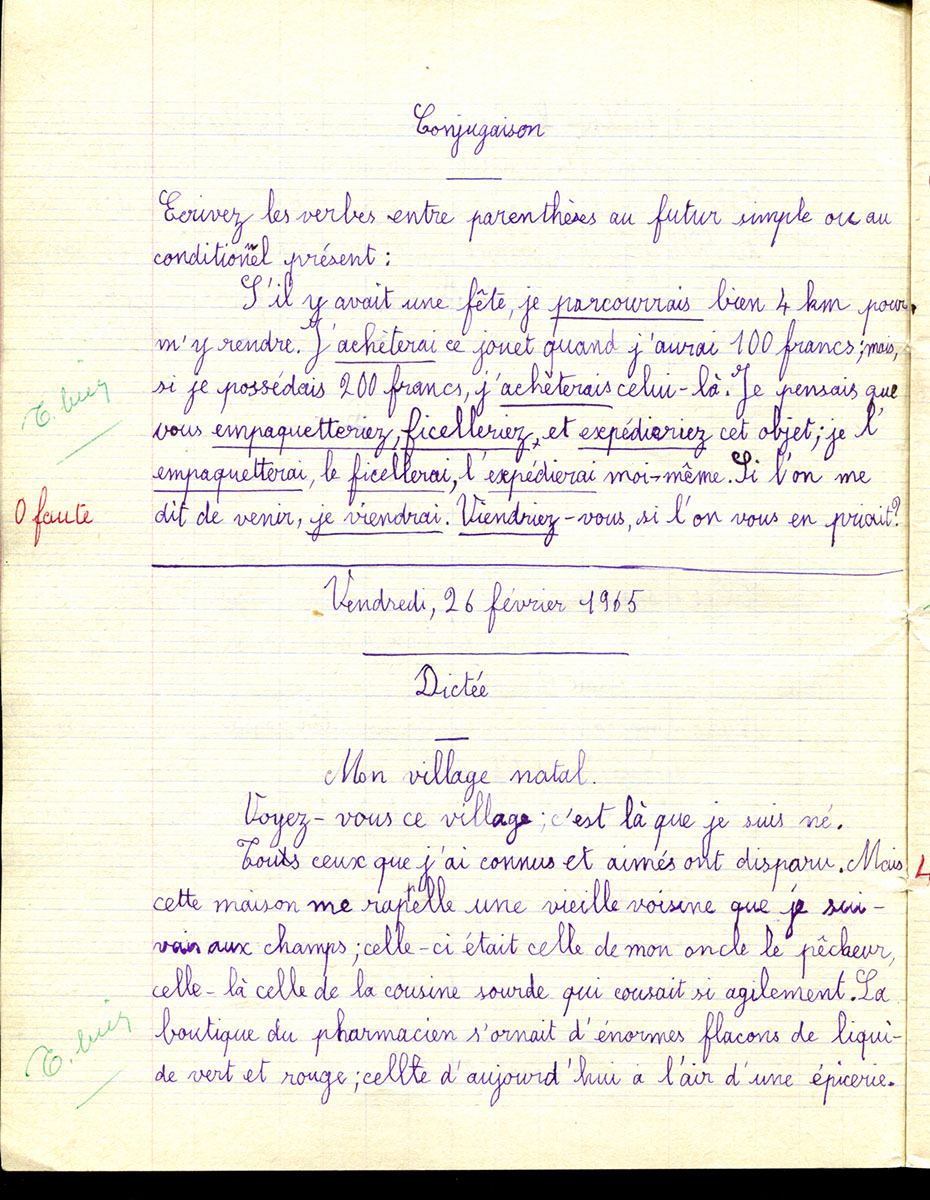 Conjugaison
Ecrivez les verbes entre parenthèses au futur simple ou au
conditionnel présent :
S'il y avait une fête, je parcourrais bien 4 km pour
m'y rendre. J'achèterai ce jouet quand j'aurai 100 francs ; mais,
si je possédais 200 francs, j'achèterais celui-là. Je pensais que
T. bien
vous empaquetteriez, ficelleriez, et expédieriez cet objet ; je l'
empaquetterai, le ficellerai, l'expédierai moi-même. Si l'on me
0 faute
dit de venir, je viendrai. Viendriez-vous, si l'on vous en priait ?
Vendredi, 26 février 1965
Dictée
Mon village natal.
Voyez-vous ce village ; c'est là que je suis né.
Tous ceux que j'ai connus et aimés ont disparu. Mais
cette maison me rappelle une vieille voisine que je sui-
vais aux champs ; celle-ci était celle de mon oncle le pêcheur,
celle-là celle de la cousine sourde qui cousait si agilement. La
boutique du pharmacien s'ornait d'énormes flacons de liqui-
T. bien
de vert et rouge ; celle d'aujourd'hui a l'air d'une épicerie.